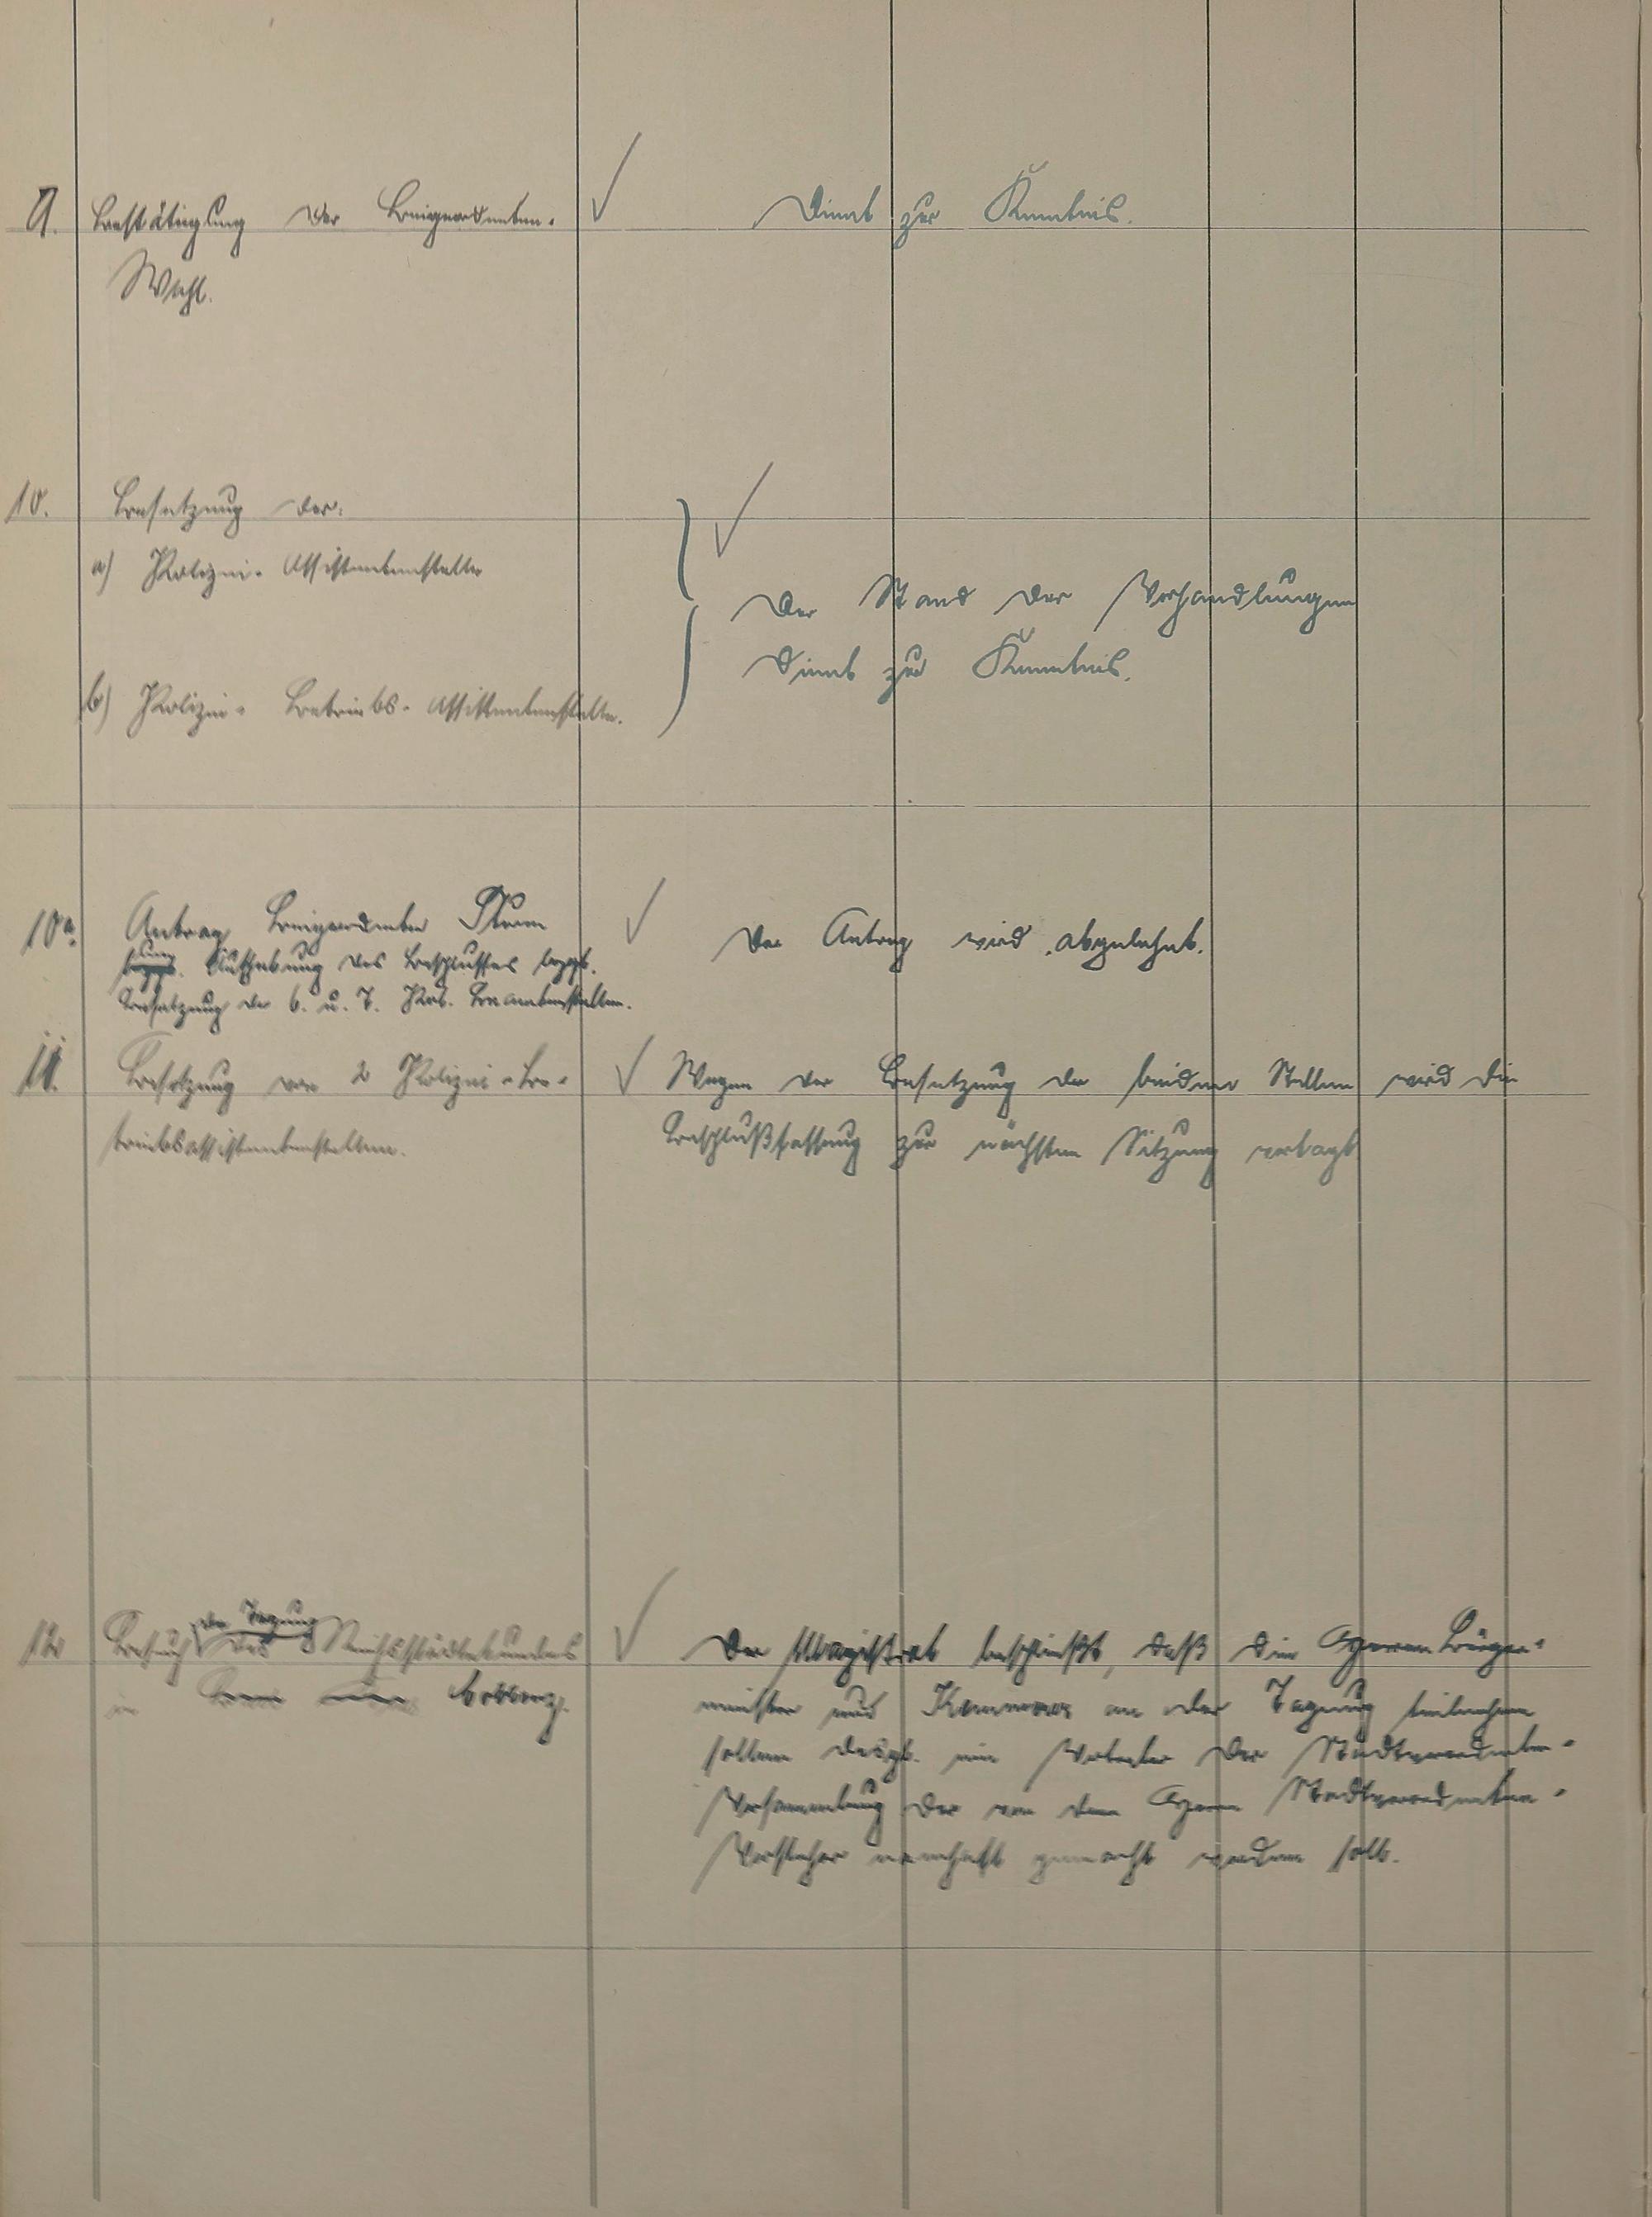 9. Bestätigung der Beigeordneten- ✓ Dient zur Kenntnis.
Wahl.
10. Besetzung der: ✓
a) Polizei-Assistentenstelle
Der Stand der Verhandlungen
dient zur Kenntnis.
b) Polizei-Betriebs-Assistentenstelle.
10a. Antrag Beigeordneter ✓ Der Antrag wird abgelehnt.
Aufhebung des Beschlusses bezgl.
Besetzung der 6. u. 7. Pol. Beamtenstellen.
11. Besetzung von 2 Polizei-Be- ✓ Wegen der Besetzung der beiden Stellen wird die
triebsassistentenstellen. Beschlußfassung zur nächsten Sitzung vertagt
der Tagung
12 Besuch des Reichsstädtebundes ✓ Der Magistrat beschließt, daß die Herren Bürger-
in Coblenz. meister und an der Tagung teilnehmen
sollen desgl. ein Vertreter der Stadtverordneten-
Versammlung der von dem Herrn Stadtverordneten-
Vorsteher namhaft gemacht werden soll.